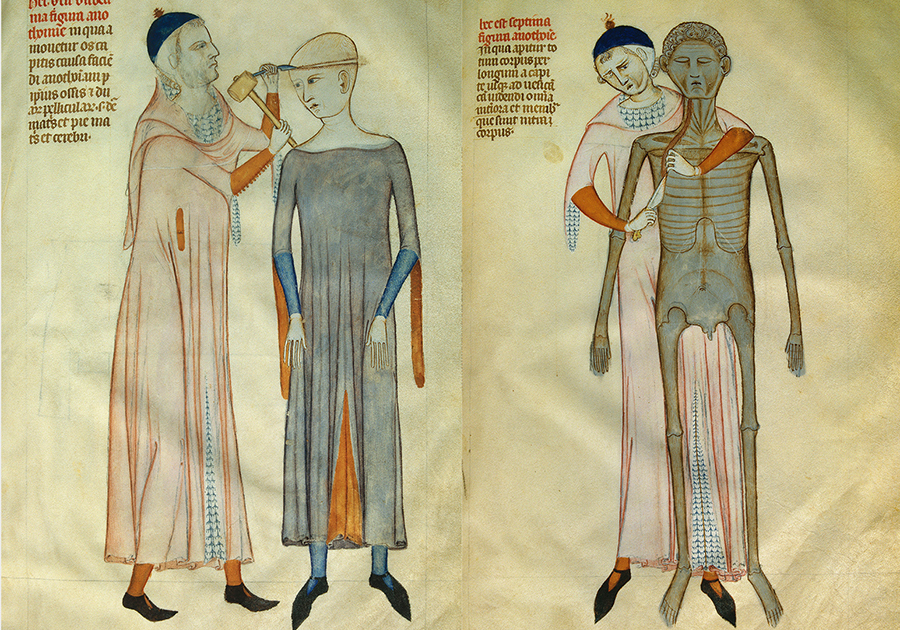 ma figura ano
thomie in qua a
mouetur os ca
pitis causa faciē
di anothomiam p
ipsius ossis & du
matris et pie ma
tris et cerebri.
hec est septima
figura anothomie
In qua apitur to
tum corpus per
longum a capi
te usque ad uesicā
cā uidendi omīa
interiora et memb
que sunt intra
corpus.